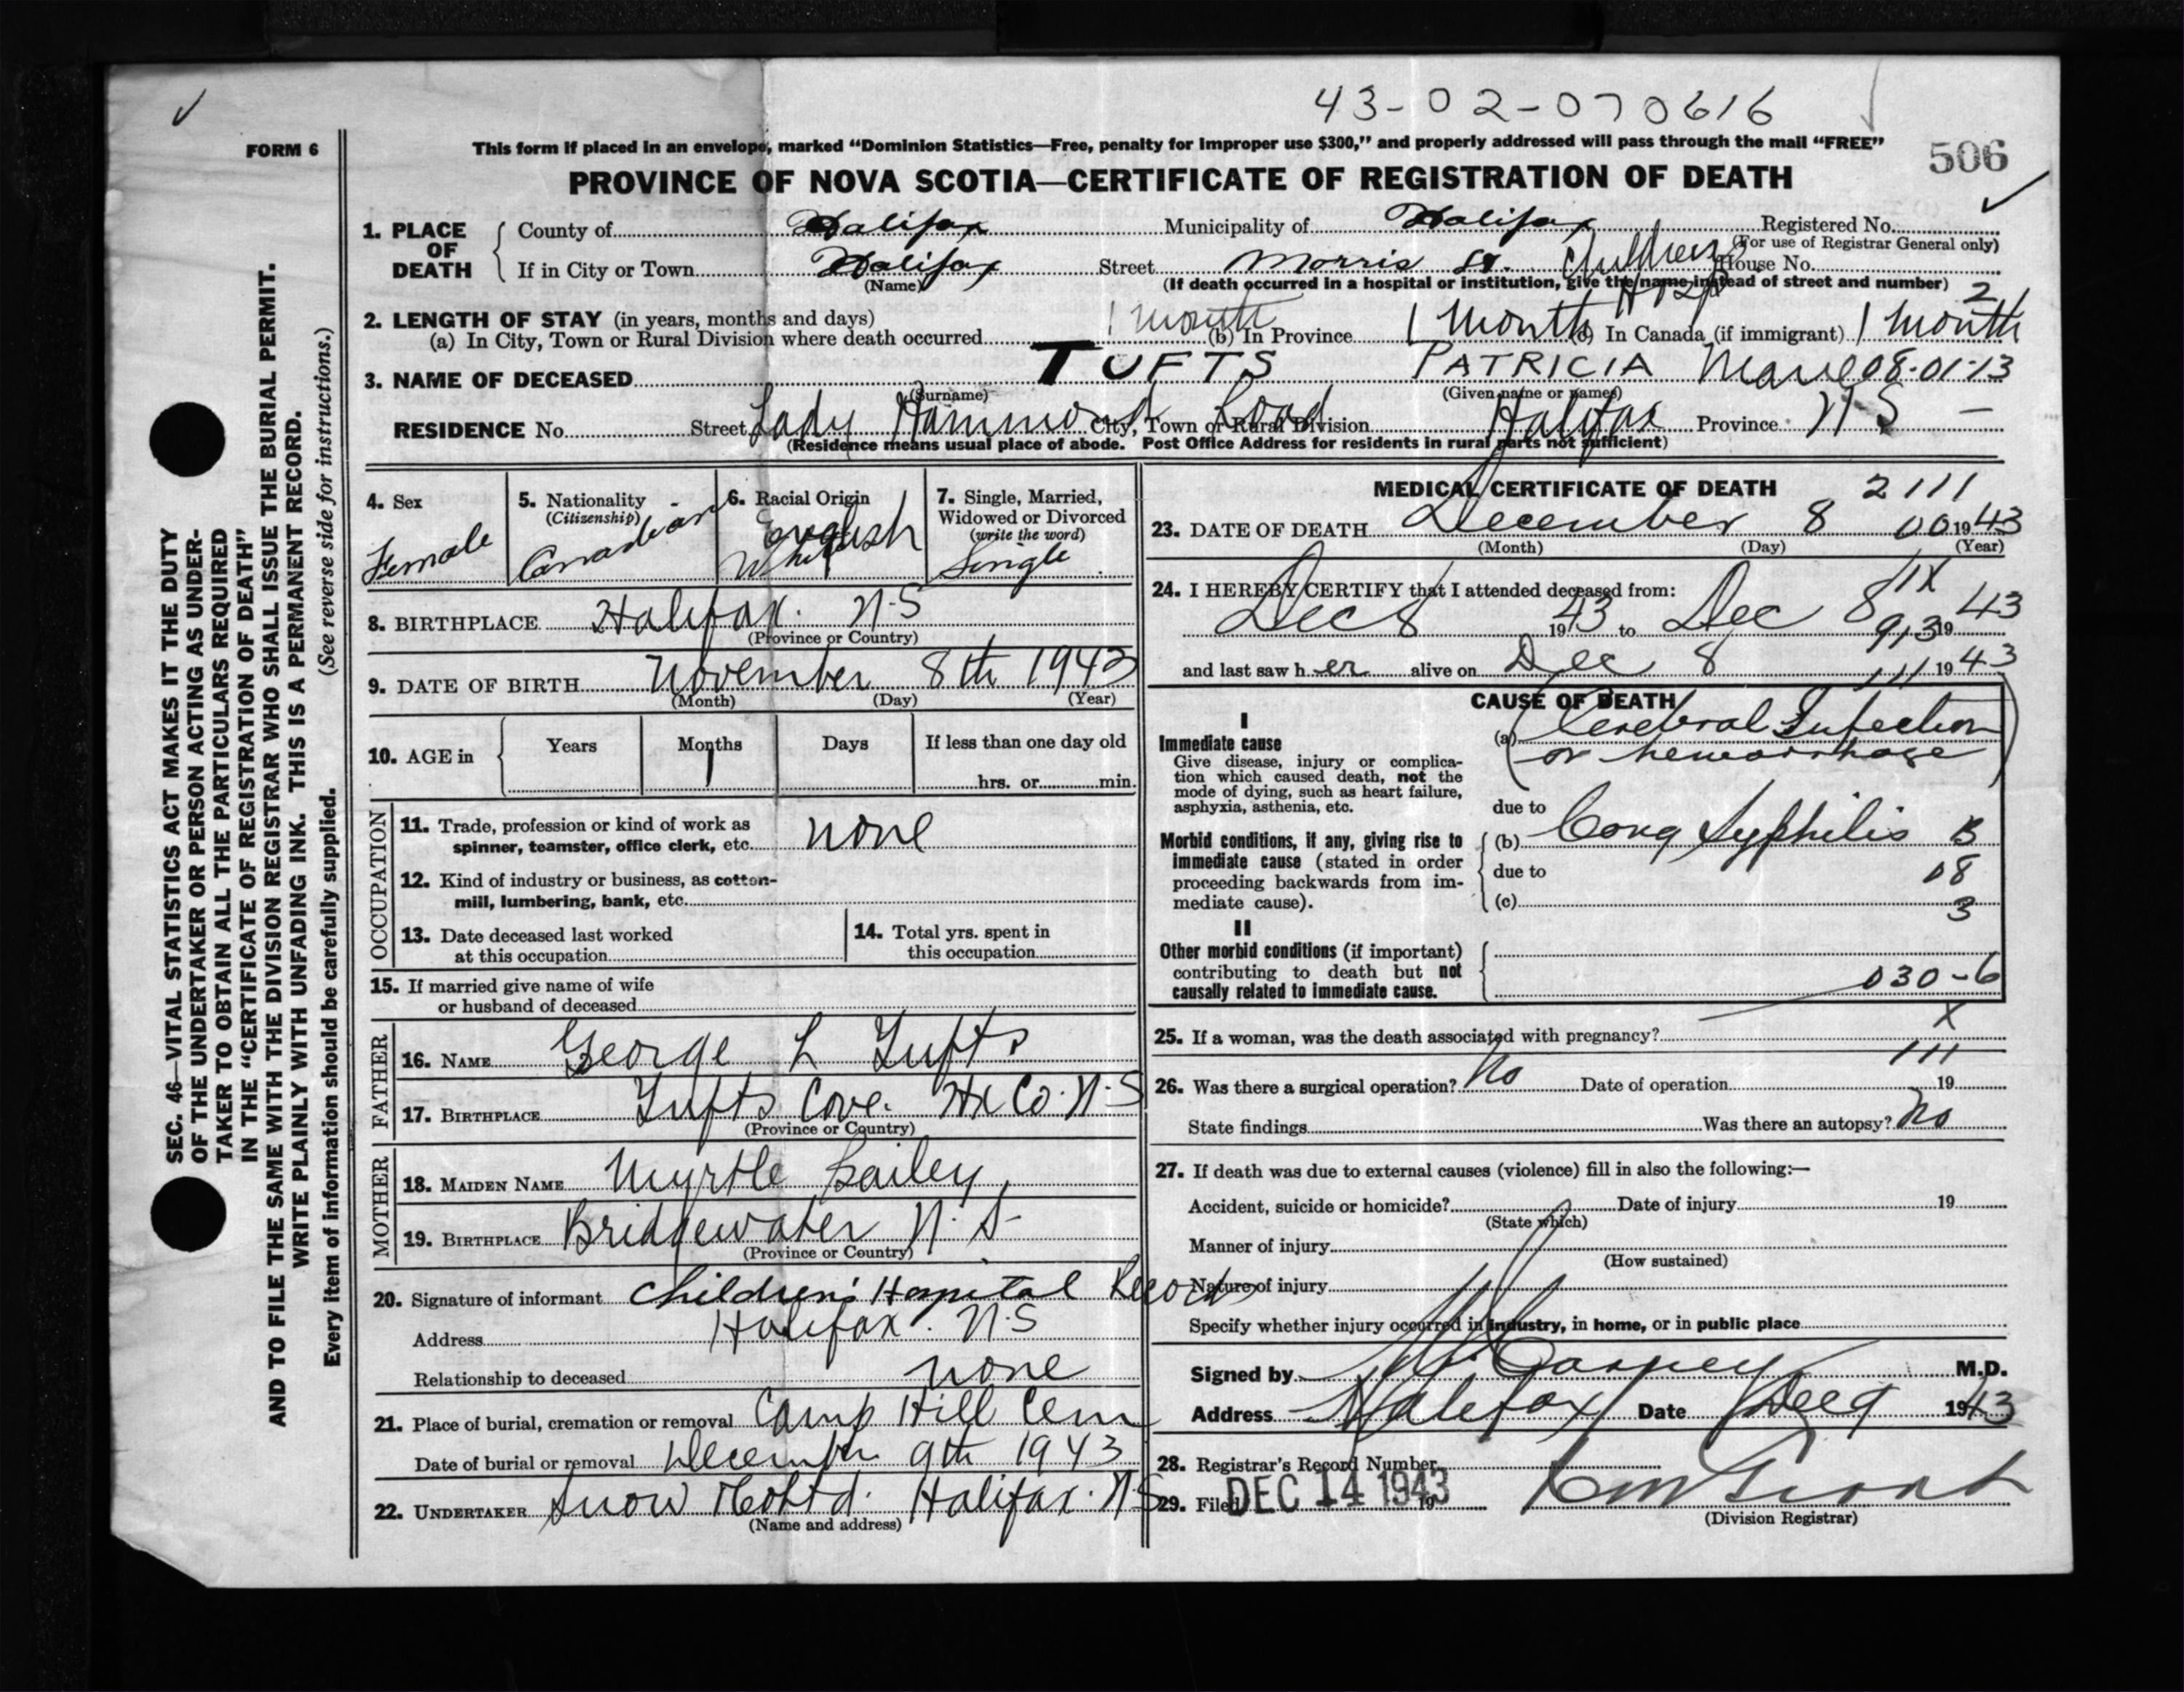 43-02-070616
FORM 6
This form if placed in an envelope, marked “Dominion Statistics—Free, penalty for improper use $300,” and properly addressed will pass through the mail “FREE”
506
PROVINCE OF NOVA SCOTIA—CERTIFICATE OF REGISTRATION OF DEATH
1. PLACE OF DEATH
County of Halifax Municipality of Halifax Registered No.
(For use of Registrar General only)
If in City or Town Halifax Street Morris St. Childrens Hosp House No.
(Name) (If death occurred in a hospital or institution, give the name instead of street and number)
2
2. LENGTH OF STAY (in years, months and days)
(a) In City, Town or Rural Division where death occurred 1 month (b) In Province 1 month (c) In Canada (if immigrant) 1 month
3. NAME OF DECEASED TUFTS PATRICIA Marie 08-01-13
(Surname) (Given name or names)
RESIDENCE No. Street Lady Hammond Road City, Town or Rural Division Halifax Province N S —
(Residence means usual place of abode. Post Office Address for residents in rural parts not sufficient)
4. Sex
Female
5. Nationality
(Citizenship)
Canadian
6. Racial Origin
English
White
7. Single, Married,
Widowed or Divorced
(write the word)
Single
8. BIRTHPLACE Halifax. N.S
(Province or Country)
9. DATE OF BIRTH November 8th 1943
(Month) (Day) (Year)
10. AGE in
Years Months Days If less than one day old
1
hrs. or min.
OCCUPATION
11. Trade, profession or kind of work as
spinner, teamster, office clerk, etc. none
12. Kind of industry or business, as cotton-
mill, lumbering, bank, etc.
13. Date deceased last worked
at this occupation
14. Total yrs. spent in
this occupation
15. If married give name of wife
or husband of deceased
FATHER
16. NAME George L Tufts
17. BIRTHPLACE Tufts Cove. Hx Co. N.S
(Province or Country)
MOTHER
18. MAIDEN NAME Myrtle Bailey
19. BIRTHPLACE Bridgewater N.S
(Province or Country)
20. Signature of informant Children's Hospital Records
Address Halifax. N.S
Relationship to deceased none
21. Place of burial, cremation or removal Camp Hill Cem
Date of burial or removal December 9th 1943
22. UNDERTAKER Snow & Co Ltd. Halifax. N.S
(Name and address)
MEDICAL CERTIFICATE OF DEATH 2 111
23. DATE OF DEATH December 8 00 1943
(Month) (Day) (Year)
24. I HEREBY CERTIFY that I attended deceased from:
1X
Dec 8 1943 to Dec 8 1943
913
and last saw her alive on Dec 8 1943
111
CAUSE OF DEATH
I
Immediate cause
Give disease, injury or complica-
tion which caused death, not the
mode of dying, such as heart failure,
asphyxia, asthenia, etc.
(a) Cerebral Infection
or hemorrhage
due to
Morbid conditions, if any, giving rise to
immediate cause (stated in order
proceeding backwards from im-
mediate cause).
(b) Cong Syphilis B
due to 08
(c) 3
II
Other morbid conditions (if important)
contributing to death but not
causally related to immediate cause.
030-6
25. If a woman, was the death associated with pregnancy? X
111
26. Was there a surgical operation? No Date of operation 19
State findings Was there an autopsy? No
27. If death was due to external causes (violence) fill in also the following:—
Accident, suicide or homicide? Date of injury 19
(State which)
Manner of injury
(How sustained)
Nature of injury
Specify whether injury occurred in industry, in home, or in public place
Signed by M.D.
Address Halifax Date Dec 9 1943
28. Registrar's Record Number
29. Filed DEC 14 1943 19
(Division Registrar)
SEC. 46—VITAL STATISTICS ACT MAKES IT THE DUTY
OF THE UNDERTAKER OR PERSON ACTING AS UNDER-
TAKER TO OBTAIN ALL THE PARTICULARS REQUIRED
IN THE “CERTIFICATE OF REGISTRATION OF DEATH”
AND TO FILE THE SAME WITH THE DIVISION REGISTRAR WHO SHALL ISSUE THE BURIAL PERMIT.
WRITE PLAINLY WITH UNFADING INK. THIS IS A PERMANENT RECORD.
Every item of information should be carefully supplied. (See reverse side for instructions.)